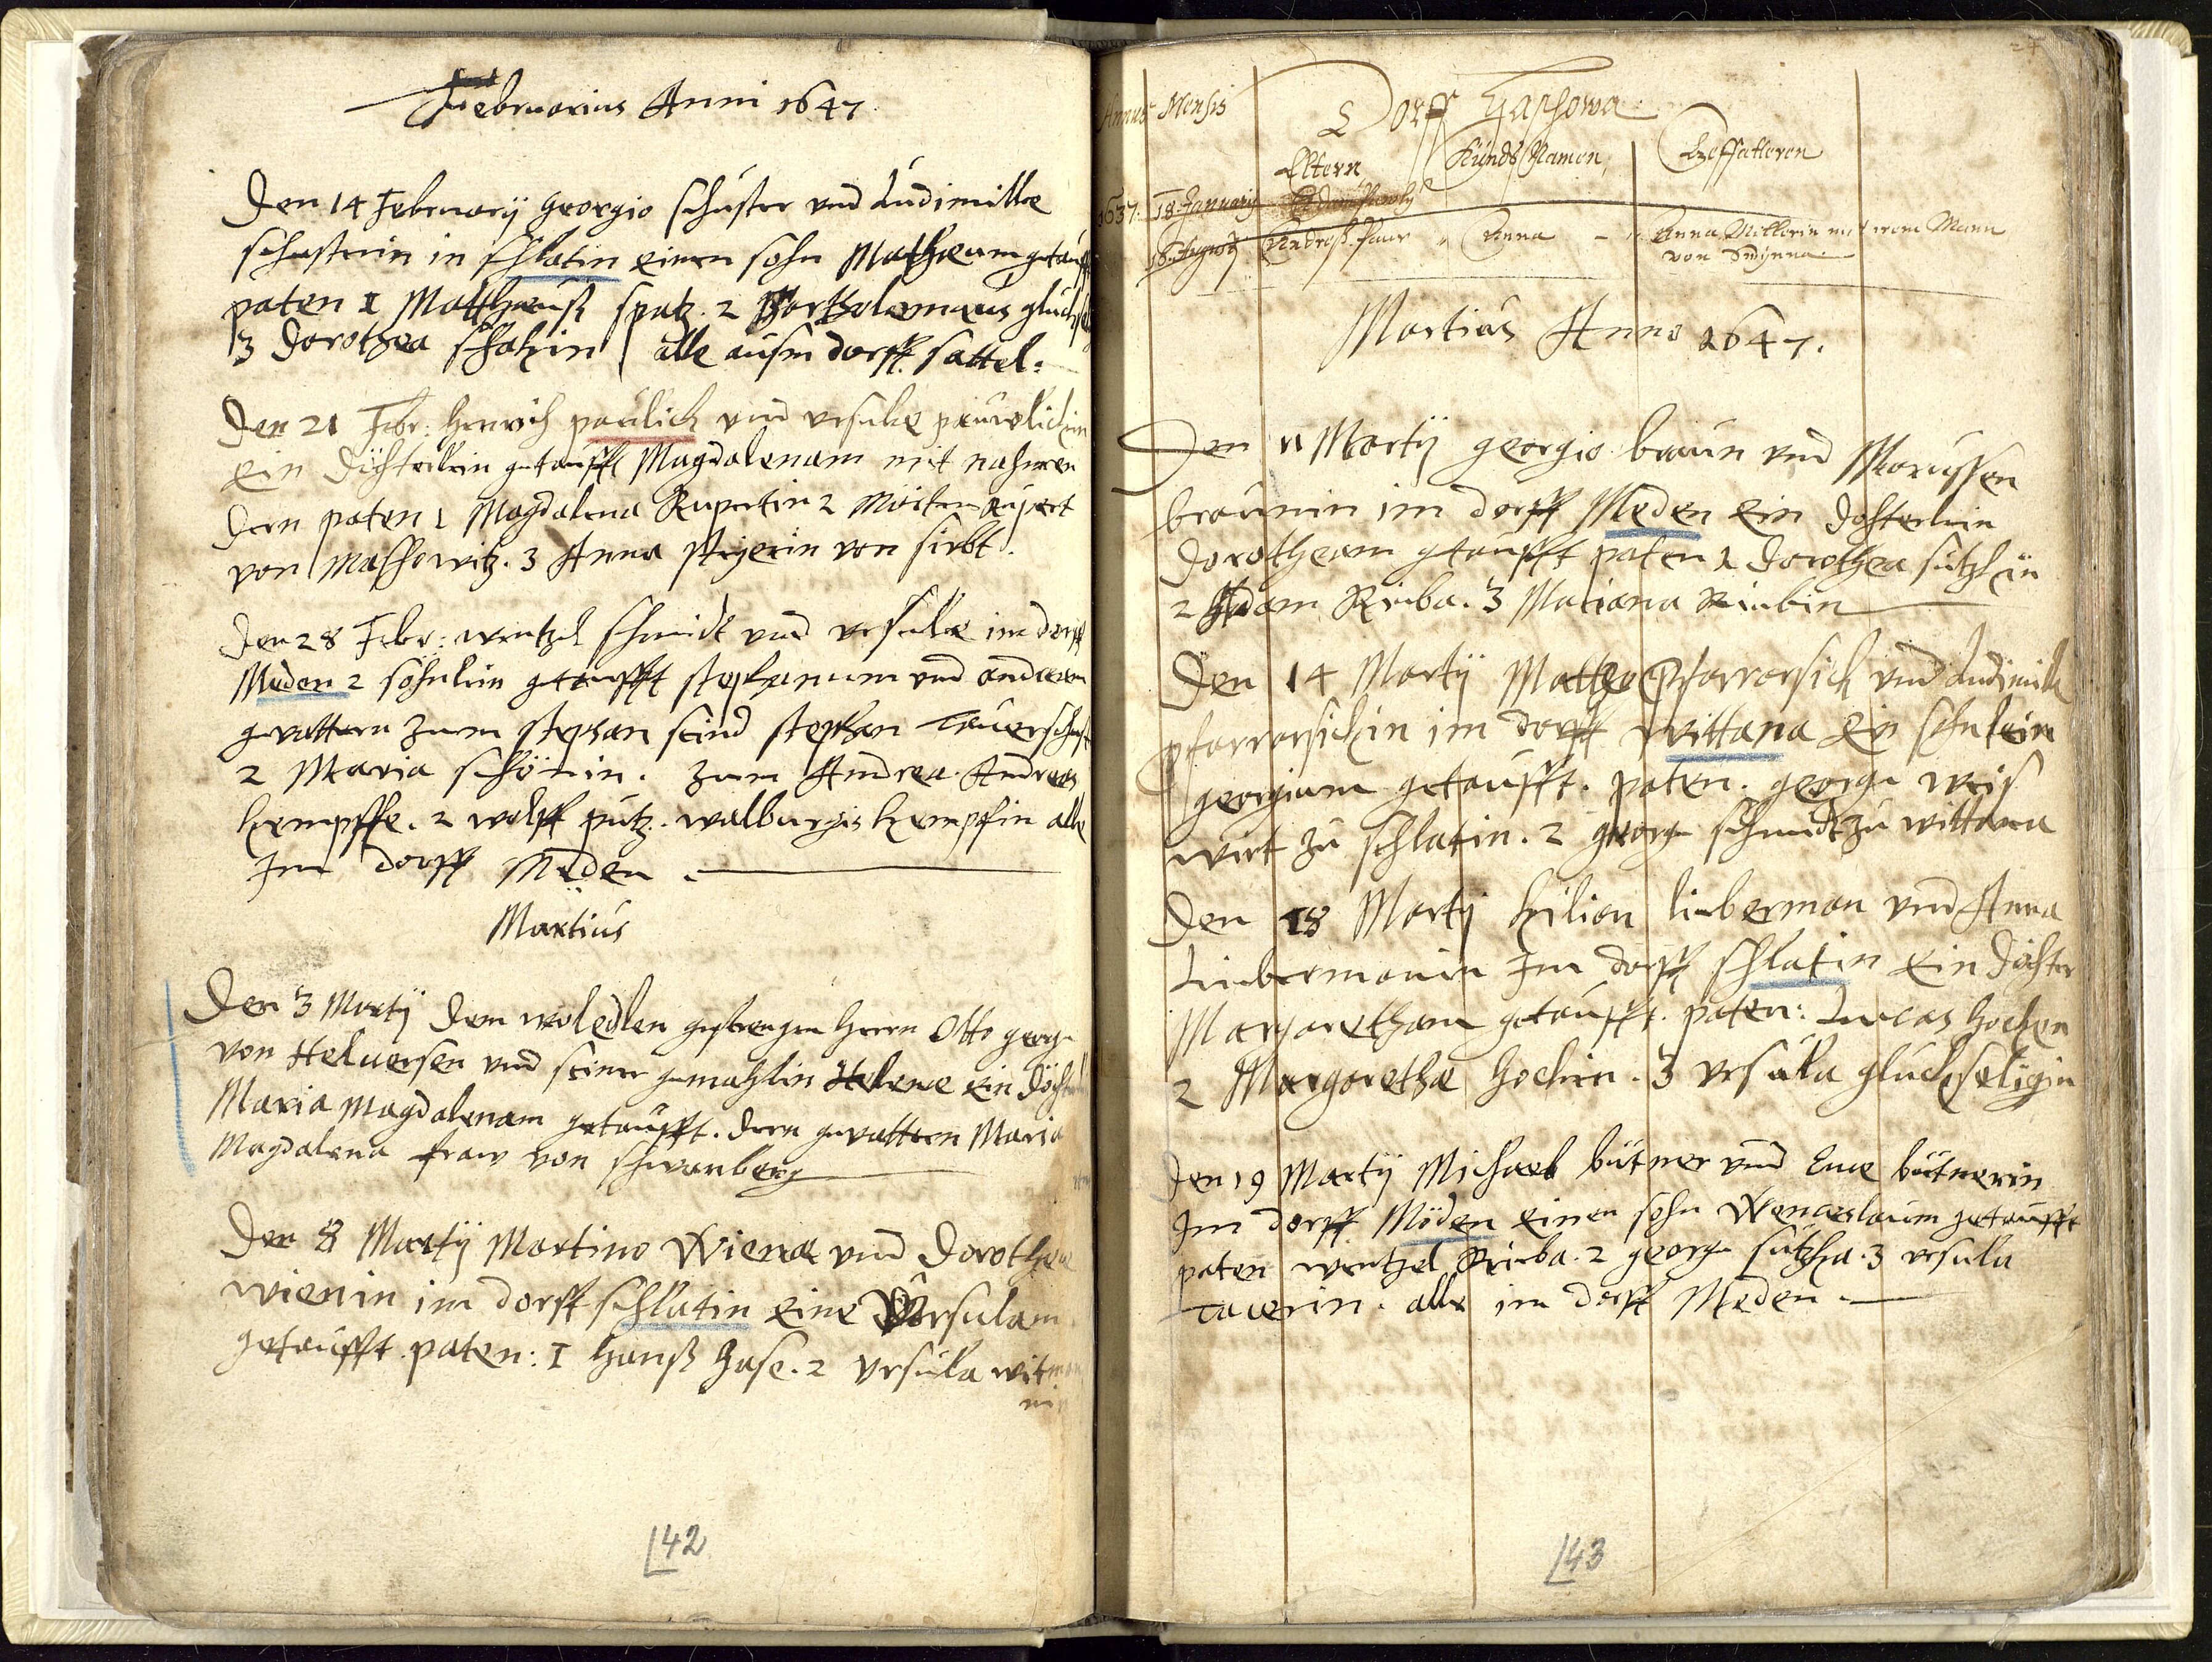 Februarius Anni 1647
Den 14 Februarij Georgio schuster und Ludimillae
schusterin in schlatin einen sohn Mathaeum getauft
paten 1 Matthaeuß spatz. 2 Bartholomaeus glückse
3 Dorothea schatzin alle ausm dorff sattel.
Den 21 Febr: Henrich paulich und Ursulae pauwlichin
ein Döchterlein getaufft Magdalenam mit nahmen
dern paten 1 Magdalena Rupertin 2 Rupert
von Maschowitz. 3 Anna von
Den 28 Febr: wentzel schmidt und ursulae im dorff
Meden 2 söhnlein getaufft stephanum und andream
gevattern zum stephan seind stephan
2 Maria schönin. zum Andrea Andreas
kempffe. 2 wolff putz. walburgis kempfin alle
Im dorff Meden.
Martius
Den 3 Martij dem woledlen gestrengen Herrn Otto georg
von Helversen und seiner gemahlin Helenae ein Döchterl
Maria Magdalenam getaufft. dern gevattern Maria
Magdalena fraw von schwanberg
Den 8 Martij Martino Wienae und Dorothea
wienin im dorff schlatin eine Ursulam
getaufft paten: 1 Hanß Hase. 2 Ursula witman
nin
42
Annus Mensis Dorff Gaschowa
Eltern Kinds Namen Geffatteren
1637. 18 Januarij
Andreß Anna Anna Millerin mit irem Mann
von
Martius Anno 1647.
Den 11 Martij georgio braun und Maruschen
braunin im dorff Meden ein dochterlein
Dorotheam getaufft paten 1 Dorothea sutzkin
2 Adam Rieba. 3 Mariana Riebin
Den 14 Martij Mattheo pfarrorsich und Ludimille
pfarrorsichin im dorff wittana ein sohnlein
georgium getaufft. paten. georg weis
wirt zu schlatin. 2 georg schmidt zu wittana
Den 18 Martij Kilion lieberman und Anna
Liebermanin Im dorff schlatin ein Döchter
Margaretham getaufft. paten: Lucas Hocken
2 Margaretha Hockin. 3 ursula gluckseligin
Den 19 Martij Michael bütner und Euae bütnerin
Im dorff Möden einen sohn Wenceslaum getaufft
paten wentzel Rieba. 2 georg sutzka. 3 ursula
tauerin. alle im dorff Meden.
43